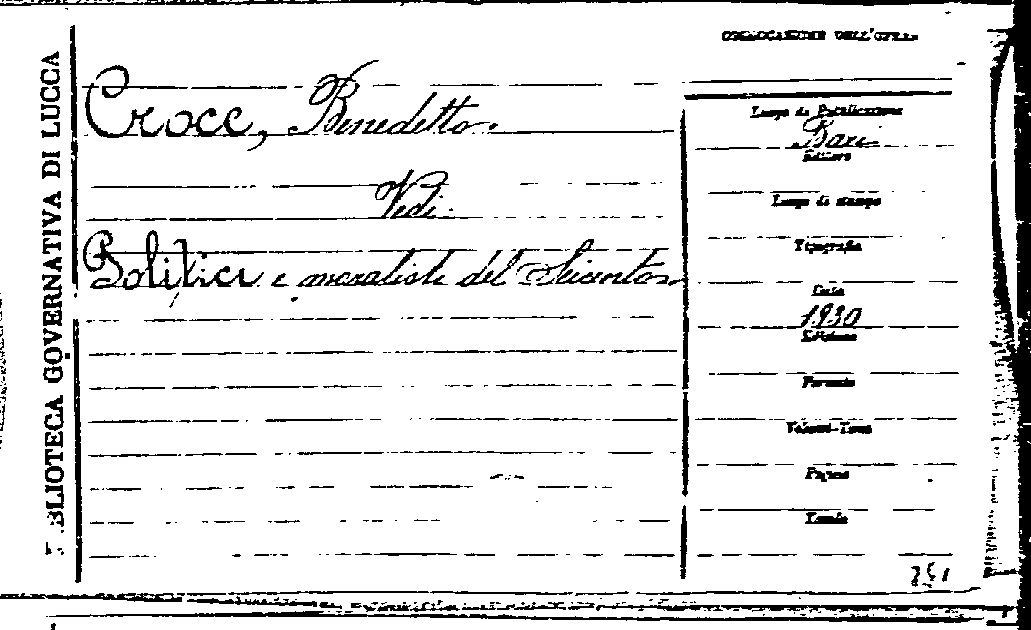 BIBLIOTECA GOVERNATIVA DI LUCCA
Croce, Benedetto.
Vedi:
Politici e moralisti del Seicento.
COLLOCAZIONE DELL'OPERA
Luogo di Pubblicazione
Bari
Editore
Luogo di stampa
Tipografia
Data
1930
Edizione
Formato
Volumi-Tomi
Pagine
Tavole
251